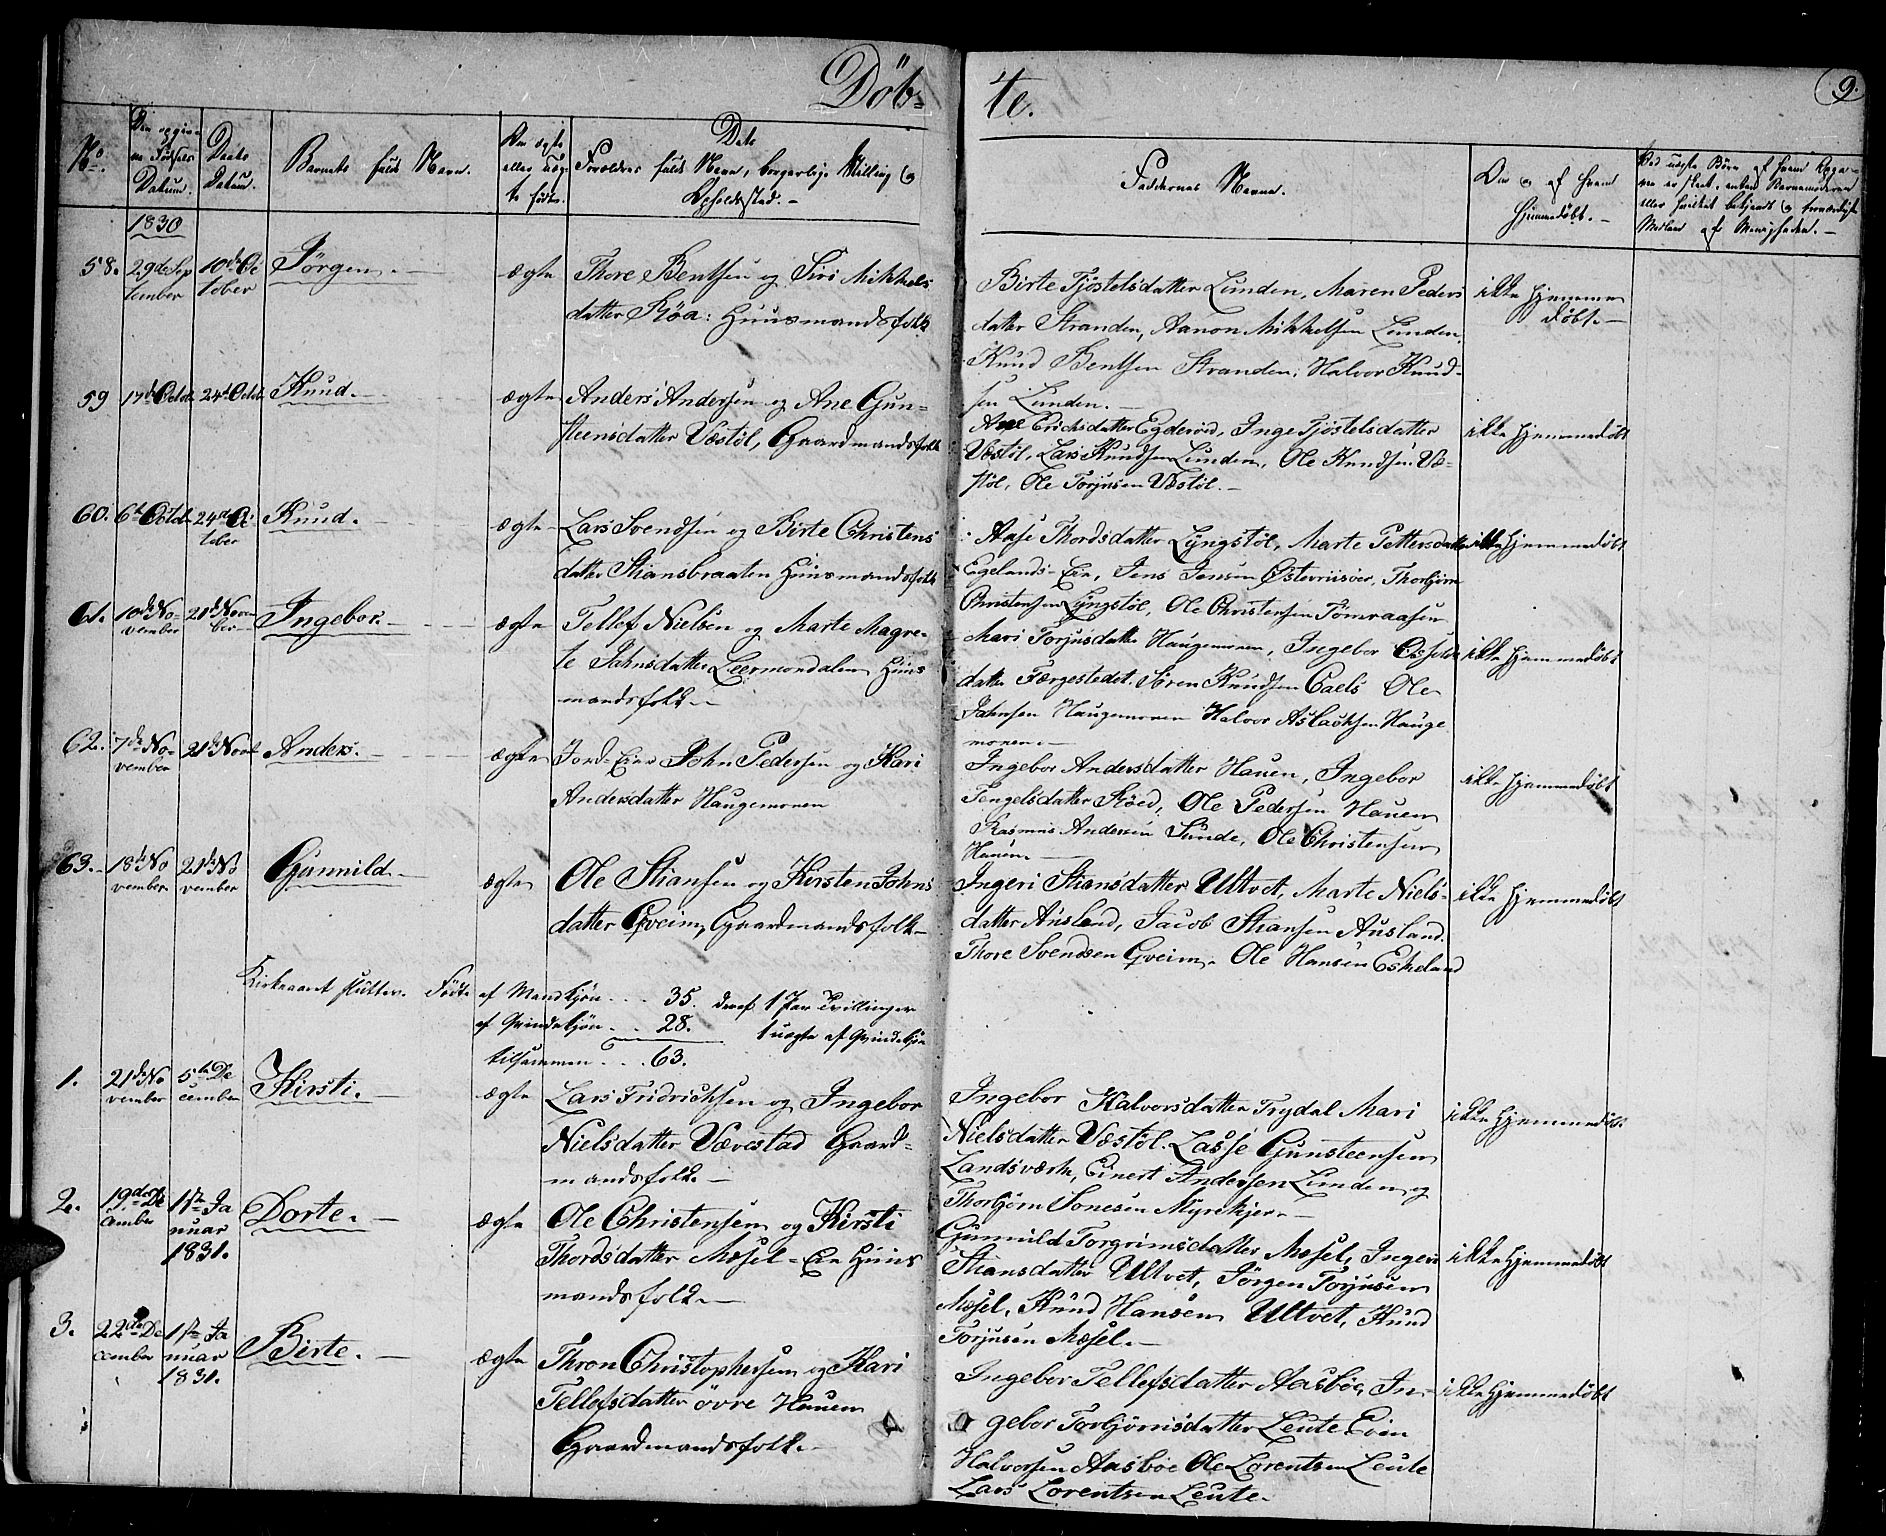 Döb=
te.
9.
No.
Den opgiv=
ne Fødsels
Datum.
Daabs
Datum.
Barnets fulde Navn.
Om ægte
eller uæg=
te født.
Dets
Forældres fulde Navn, borgerlige Stilling og
Opholdssted.
Faddernes Navne.
Om og af hvem
hjemmedøbt.
Ved uægte Børn af hvem Opga=
ven er skeet, enten Barnemoderen
eller hvilket bekjendt og troværdigt
Medlem af Menigheden.
1830
58. 29de Sep
tember
10de Oc
tober
Jörgen.
ægte
Thore Bentsen og Siri Mikkels
datter Röa: Huusmandsfolk
Birte Tjöstelsdatter Lunden, Maren Peders
datter Stranden, Aanon Mikkelsen Lunden,
Knud Bentsen Stranden, Halvor Knud=
sen Lunden.
ikke hjemme
døbt.
59 17de Octob 24de Octob Knud.
ægte
Anders Andersen og Ane Gun=
steensdatter Væstöl, Gaardmandsfolk
Ane Erichsdatter Egderöd, Inge Tjöstelsdatter
Væstöl, Lars Knudsen Lunden, Ole Knudsen Væ=
stöl, Ole Torjusen Væstöl.
ikke hjemmedøbt
60. 6te Octob 24de Oc
tober
Knud.
ægte
Lars Svendsen og Birte Christens
datter Stiansbraaten Huusmandsfolk
Aase Thordsdatter Lyngstöl, Marte Pettersdatter
Egelands-Eie, Jens Jensen Østerriisöer, Thorbjörn
Christensen Lyngstöl, Ole Christensen Tömraasen
ikke hjemmedøbt
61. 10de No=
vember
21de Novem
ber
Ingebor.
ægte
Tellef Nielsen og Marte Magre=
te Jahnsdatter Leermondalen Huus
mandsfolk.
Mari Torjusdatter Haugemoen, Ingebor
datter Færgestedet. Sören Knudsen Caels Ole
Jahnsen Haugemoen Halvor Aslachsen Hauge
moen.
ikke hjemmedøbt
62. 7de No=
vember
21de Novb Anders.
ægte
Jord-Eier John Pedersen og Kari
Andersdatter Haugemoen
Ingebor Andersdatter Hauen, Ingebor
Tengelsdatter Röed, Ole Pedersen Hauen
Rasmus Andersen Sunde, Ole Christensen
Hauen.
ikke hjemmedøbt
63. 18de No
vember
21de No
vember
Gunnild.
ægte
Ole Stiansen og Kirsten Johns
datter Gveim, Gaardmandsfolk
Ingeri Stiansdatter Ultvet, Marte Niels=
datter Ausland, Jacob Stiansen Ausland.
Thore Svendsen Gveim. Ole Hansen Eskeland
ikke hjemmedøbt
Kirkeaaret slutter. Födte af Mandkjön . . . 35. deraf 1 Par Tvillinger
af Qvindekjön . . 28. 1 uægte af Qvindekjön
tilsammen . . . 63.
1. 21de No
vember
5te De
cember
Kirsti.
ægte
Lars Fridrichsen og Ingebor
Nielsdatter Vævestad Gaard=
mandsfolk.
Ingebor Halvorsdatter Trydal Mari
Nielsdatter Væstöl. Lasse Gunsteensen
Landsværk, Einert Andersen Lunden og
Thorbjörn Sonesen Myrekjer.
ikke hjemmedøbt.
2. 19de De
cember
1ste Ja
nuar
1831.
Dorte.
ægte
Ole Christensen og Kirsti
Thordsdatter Mösel-Eie Huus
mandsfolk.
Gunnuld Torgrimsdatter Mæsel, Ingeri
Stiansdatter Ultvet, Jörgen Torjusen
Mæsel, Knud Hansen Ultvet, Knud
Torjusen Mæsel.
ikke hjemmedøbt
3. 22de De
cember
1ste Ja
nuar
1831.
Birte.
ægte
Thron Christophersen og Kari
Tellefsdatter övre Hauen
Gaardmandsfolk.
Ingebor Tellefsdatter Aasböe, In=
gebor Torbjörnsdatter Leute Even
Halvorsen Aasböe Ole Lorentsen Leute
Lars Lorentsen Leute.
ikke hjemmedøbt